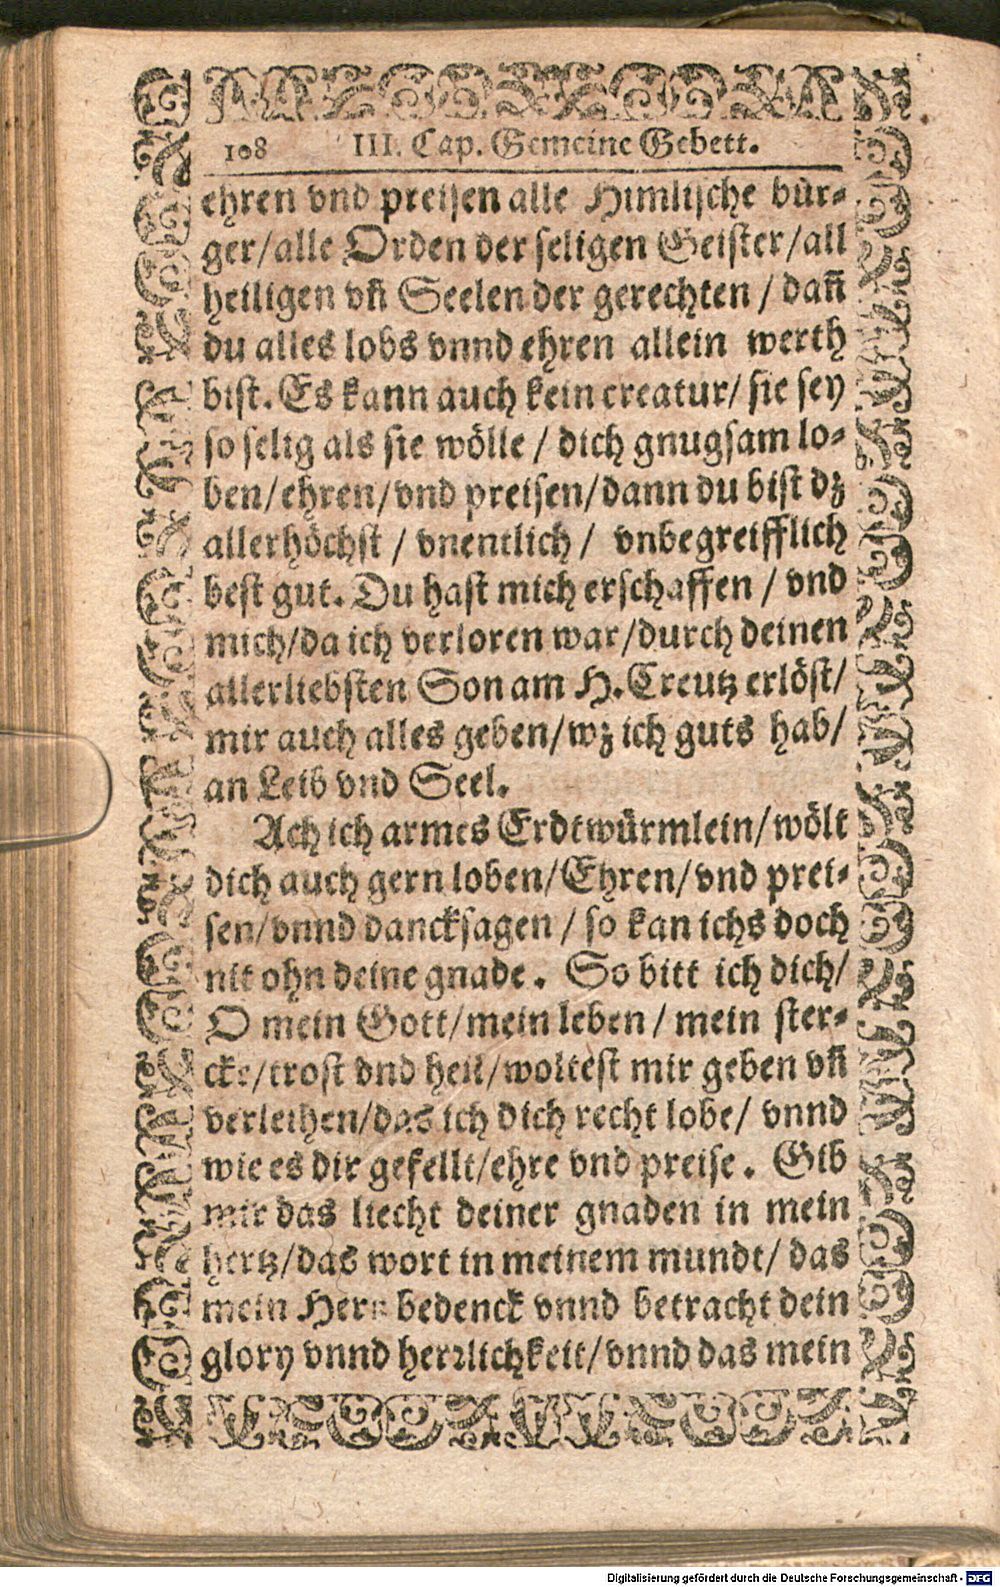 108 III. Cap. Gemeine Gebett.
ehren vnd preisen alle Himlische bür-
ger/alle Orden der seligen Geister/all
heiligen vñ Seelen der gerechten / dañ
du alles lobs vnnd ehren allein werth
bist. Es kann auch kein creatur/ sie sey
so selig als sie wölle / dich gnugsam lo-
ben/ehren/vnd preisen/dann du bist dz
allerhöchst / vnentlich / vnbegreifflich
best gut. Du hast mich erschaffen / vnd
mich/da ich verloren war/durch deinen
allerliebsten Son am H. Creutz erlöst/
mir auch alles geben/wz ich guts hab/
an Leib vnd Seel.
Ach ich armes Erdtwürmlein/wölt
dich auch gern loben/Ehren/vnd prei-
sen/vnnd dancksagen / so kan ichs doch
nit ohn deine gnade. So bitt ich dich/
O mein Gott/mein leben / mein ster-
cke/trost vnd heil/woltest mir geben vñ
verleihen/das ich dich recht lobe/ vnnd
wie es dir gefellt/ehre vnd preise. Gib
mir das liecht deiner gnaden in mein
hertz/das wort in meinem mundt/ das
mein Herz bedenck vnnd betracht dein
glory vnnd herꝛlichkeit/vnnd das mein
Digitalisierung gefördert durch die Deutsche Forschungsgemeinschaft - DFG